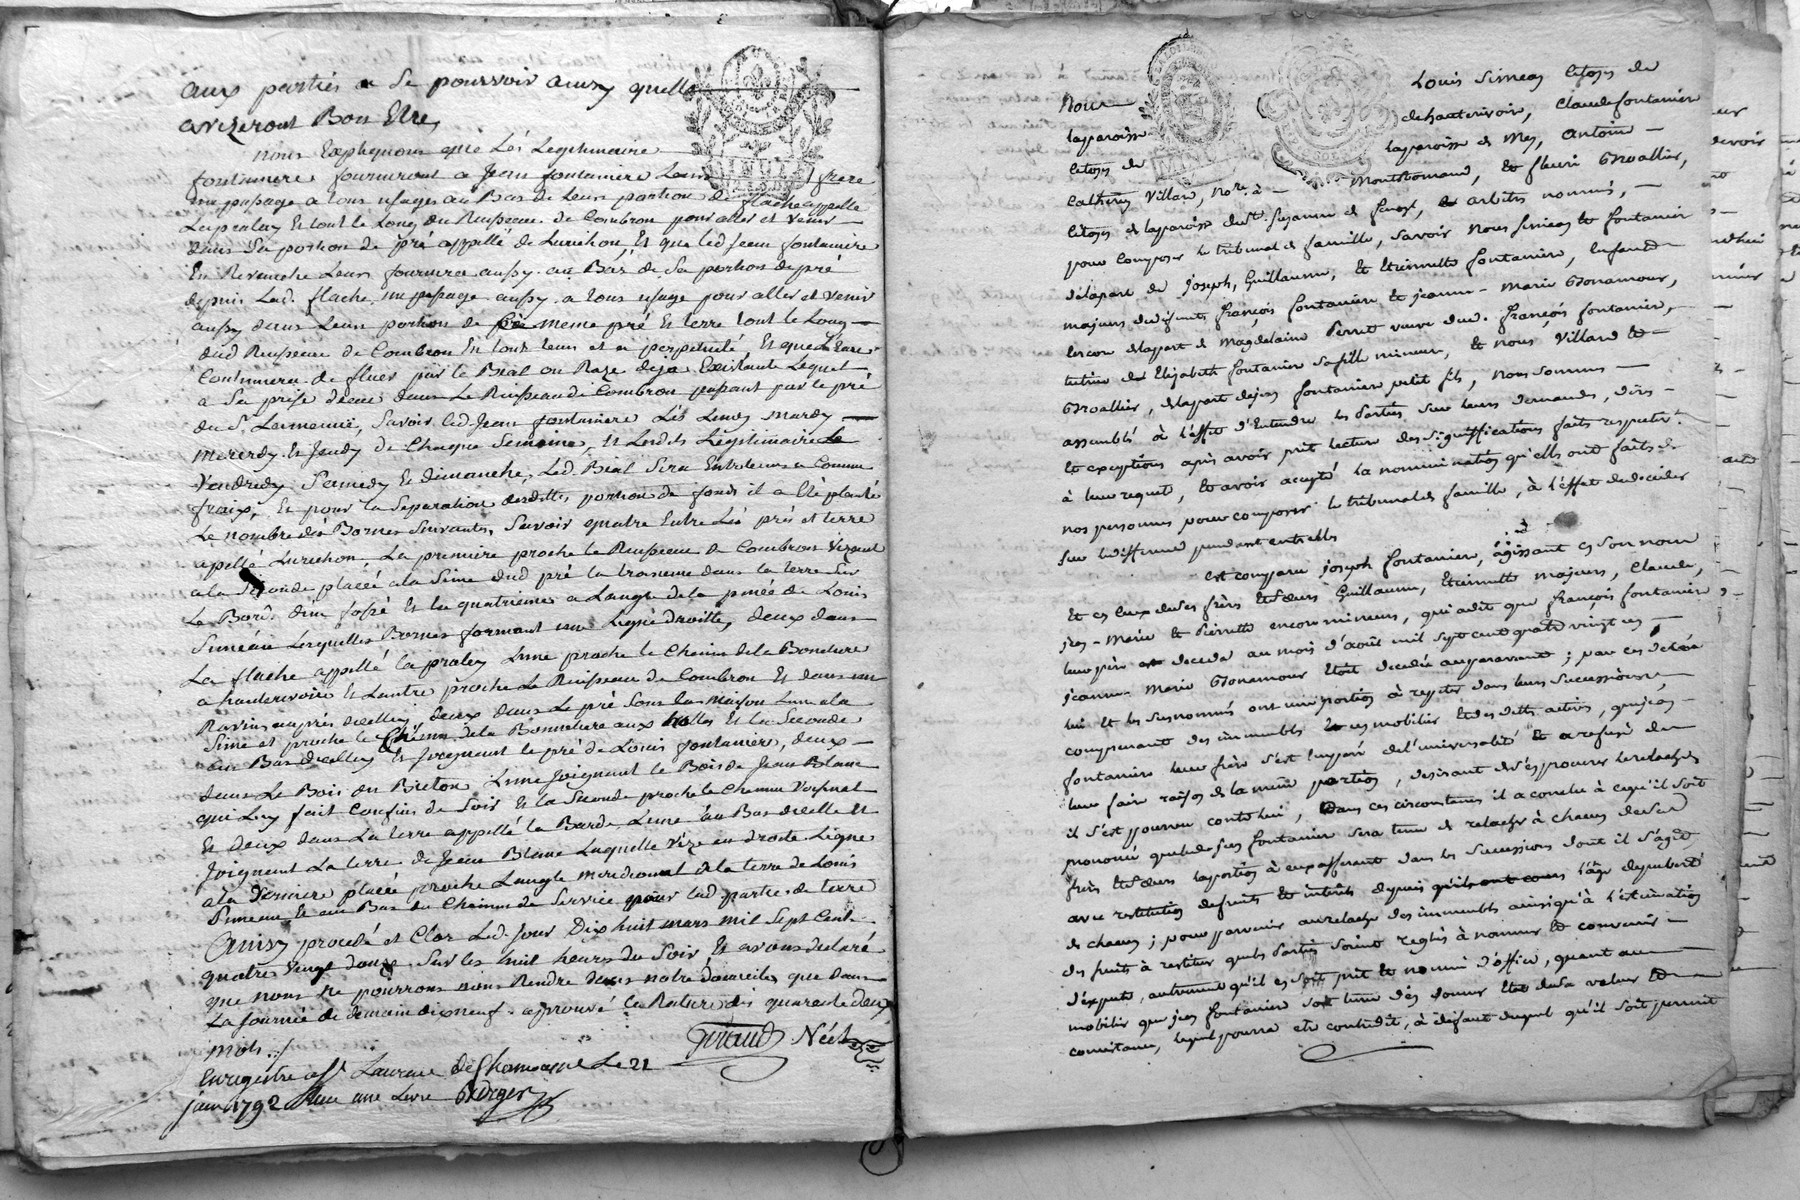 aux parties a se pourvoir ainsy quelle
avizeront Bon Etre,
nous Expliquons que Les Legitimaire
fontaniere fourniront a Jean fontaniere Leur frere
un passage a tous usages au Bas de Leur portion de flache appelle
La praley Et tout le Long du Ruisseau de Combron pour aller et venir
dans Sa portion de pré appellé de Lurichon, Et que led. Jean fontaniere
En Revenche Leur fournira aussy au Bas de Sa portion de pré
depuis Lad. flache, un passage aussy a tous usage pour aller et venir
aussy dans Leur portion de meme pré Et terre tout le Long
dud Ruisseau de Combron En tout tems et a perpetuité Et que L'eau
Continuera de fluer par le Bial ou Raze deja Existante Lequel
a Sa prise d'eau dans Le Ruisseau de Combron passant par le pré
du Sr. Larmenié, Savoir led. Jean fontaniere Les Lundy Mardy
Mecredy Et Jeudy de Chaque Semaine, Et Lesdits Légitimaire Le
Vendredy Samedy Et dimanche, Led. Bial Sera Entretenu a Commun
fraix, Et pour la Separation desdittes portion de fonds il a Eté planté
Le nombre des Bornes Suivantes, Savoir quatre Entre Les prés et terre
apellé Lurichon La premiere proche le Ruisseau de Combron Vizant
a la Seconde placée a la Sime dud pré la troisieme dans la terre Sur
Le Bord d'un fossé Et la quatrieme a Langle de la pinée de Louis
Simean Lesquelles Bornes formant une Ligne droitte, deux dans
La flache appellé la praley Lune proche le Chemin de la Bonneture
a hauterivoire Et Lautre proche Le Ruisseau de Combron Et dans un
Ravin auprès dicelluy, deux dans Le pré Sous la Maison Lune a la
Sime et proche le Chemin de la Bonneture aux halles Et la Seconde
au Bas dicelluy Et Joignant le pré de Louis fontaniere, deux
dans Le Bois du Breton Lune Joignant le Bois de Jean Blanc
qui Luy fait Confin de Soir Et la Seconde proche le Chemin Voisinal
Et deux dans La terre appellé la Barde Lune au Bas dicelle Et
Joignent La terre de Jean Blanc Laquelle Vize en droite Ligne
a la derniere placée proche Langle meridional de la terre de Louis
Simean Et au Bas du Chemin de Service pour lad partie de terre
Ainsy procedé et Clos Led. Jour Dix huit mars mil Sept Cent
quatre vingt douze Sur les heures du Soir, Et avons declaré
que nous Ne pourrons nous Rendre dans notre domicile que dans
La Journée de demain dixneuf. aprouvé La Rature des quarante deux
mots ./.
Giraud Nére
Enregistré a St. Laurent de Chamousset Le 21
1792 Reçu une Livre
Nous Louis Simean Citoyen de
laparoisse de hauterivoir, Claude fontanier
Citoyen de laparoisse de Mey, Antoine
Catherin Villard, Nore. à Montromand, Et fleuri Gnoallier,
Citoyen de laparoisse de St. , arbitres nommés,
pour Composer le tribunal de famille, Savoir Nous Simean Et fontanier
delapart de Joseph, Guillaume, Et Etiennette fontanier, Enfants
majeurs de defunts françois fontanier Et jeanne-Marie Bonamour,
encore delapart de Magdelaine Perret veuve dud. françois fontanier,
tutrice de Elizabeth fontanier Safille mineure, Et nous Villard Et
Gnoallier, delapart de jean fontanier petit fils, Nous Sommes
assemblés à L'effet d'Entendre les Parties Sur leurs demandes, dires
Et exceptions après avoir prit lecture des Significations faites respectiv.
à leur requete, Et avoir accepté la nomination qu'elles ont faites de
nos personnes pour composer le tribunal de famille, à l'effet de decider
Sur le differend pendant entr'elles
Est comparu joseph fontanier, agissant En Son nom
Et En Ceux de Ses frères Et Sœurs Guillaume, Etiennette majeurs, Claude,
jean-Marie Et Pierrette encore mineurs, qui a dit que françois fontanier
leur père Est decedé au mois d'août mil Sept cent quatre vingt un
jeanne-Marie Bonamour Etoit decedée auparavant; par ces deceds
lui Et les Susnommés ont une portion à repeter dans leurs Successions,
composant des immeubles Et en mobilier Et des dettes actives, que jean
fontanier leur frère S'est Emparé de l'universalité Et a refusé de
leur faire raison de la même portion, desirant d'Espouvoir le relachement
il S'est pourvu contre lui, Dans ces circonstances il a conclu à ce qu'il Soit
prononcé que led. jean fontanier Sera tenu de relacher à chacun de Ses
frères Et Sœurs laportion à eux afferant dans les Successions dont il S'agit
avec restitution de fruits Et interets depuis qu'ils ont cours l'âge de puberté
de chacun; pour parvenir au relachement des immeubles ainsi qu'à l'estimation
des fruits à restituer que les Parties Soient reglés à nommer Et convenir
d'experts, autrement qu'il en Soit prit Et nommé d'office, quant au
mobilier que jean fontanier Soit tenu d'en donner Etat de la valeur Et
consistance, lequel pourra etre contredit, à défaut duquel qu'il Soit permis